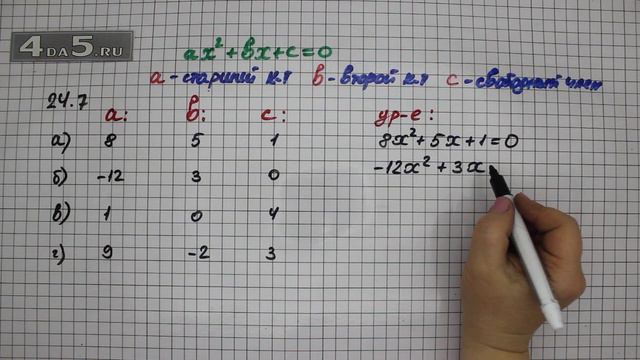 4DA5.RU
ax²+bx+c=0
а - старший к.т в - второй к.т с - свободный член
24.7
а: в: с: ур-е:
а) 8 5 1 8x²+5x+1=0
б) -12 3 0 -12x²+3x
в) 1 0 4
г) 9 -2 3